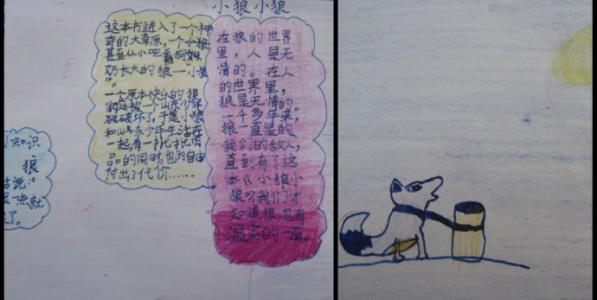 小狼小狼
这本书进入了一个神
奇的大草原,一个小狼
甚至从小吃着狗妈
奶长大的狼一小狼
一个原本快乐的狼
被破坏了,于是小狼
和山东少年生活在
品的同时,也为自由
付出了代价……
在狼的世界
里,人是无
情的。在人
的世界里,
狼是无情的。
一千多年来,
狼一直是的
我们的敌人,
直到有了这
本《小狼小
狼》我们才
知道狼也有
温柔的一面。
知识
狼
说:“
一点就
了。